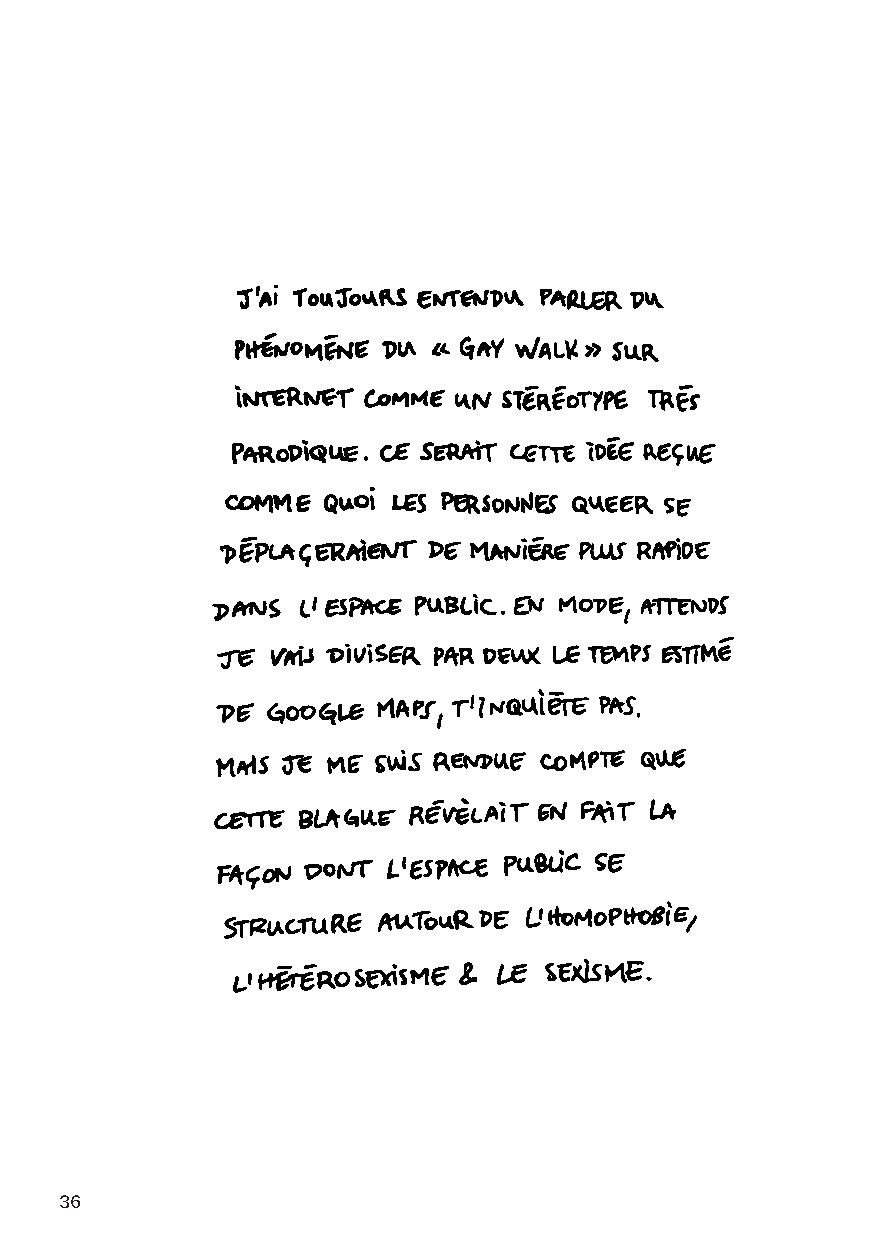 J'Ai TOUJOURS ENTENDU PARLER DU
PHÉNOMÈNE DU « GAY WALK » SUR
iNTERNET COMME UN STÉRÉOTYPE TRÈS
PARODiQUE. CE SERAiT CETTE iDÉE REÇUE
COMME QUOi LES PERSONNES QUEER SE
DÉPLAÇERAiENT DE MANiÈRE PLUS RAPiDE
DANS L'ESPACE PUBLiC. EN MODE, ATTENDS
JE VAiS DiViSER PAR DEUX LE TEMPS ESTIMÉ
DE GOOGLE MAPS, T'iNQUiÈTE PAS.
MAIS JE ME SUiS RENDUE COMPTE QUE
CETTE BLAGUE RÉVÈLAiT EN FAiT LA
FAÇON DONT L'ESPACE PUBLiC SE
STRUCTURE AUTOUR DE L'HOMOPHOBiE,
L'HÉTÉROSEXiSME & LE SEXiSME.
36